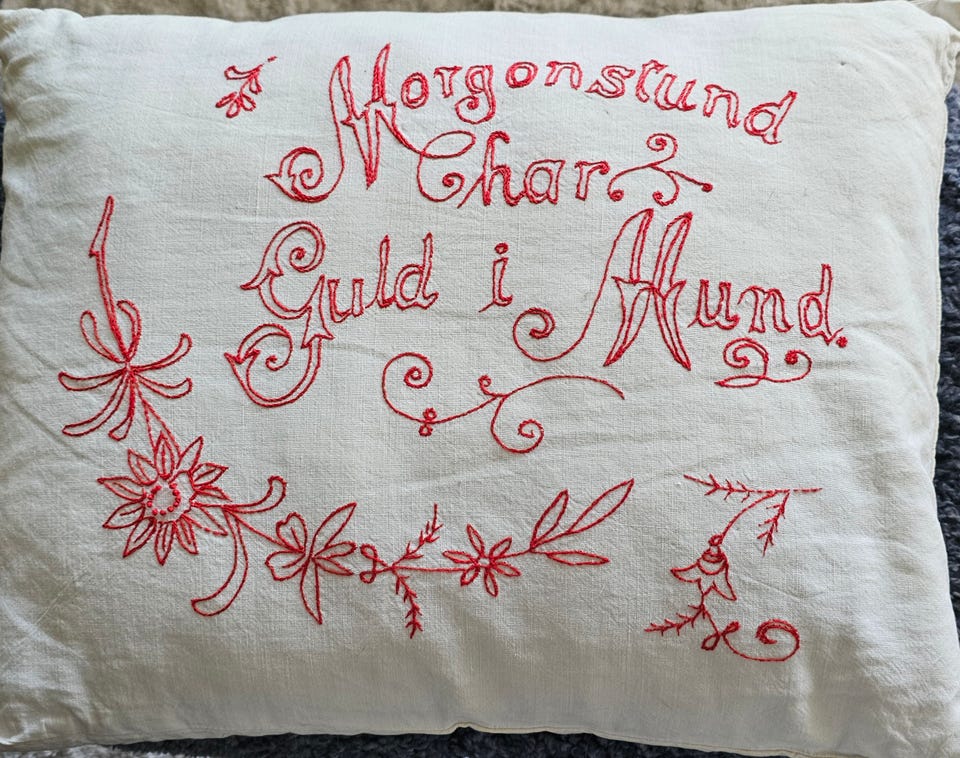 Morgonstund
Char
Guld i Mund.